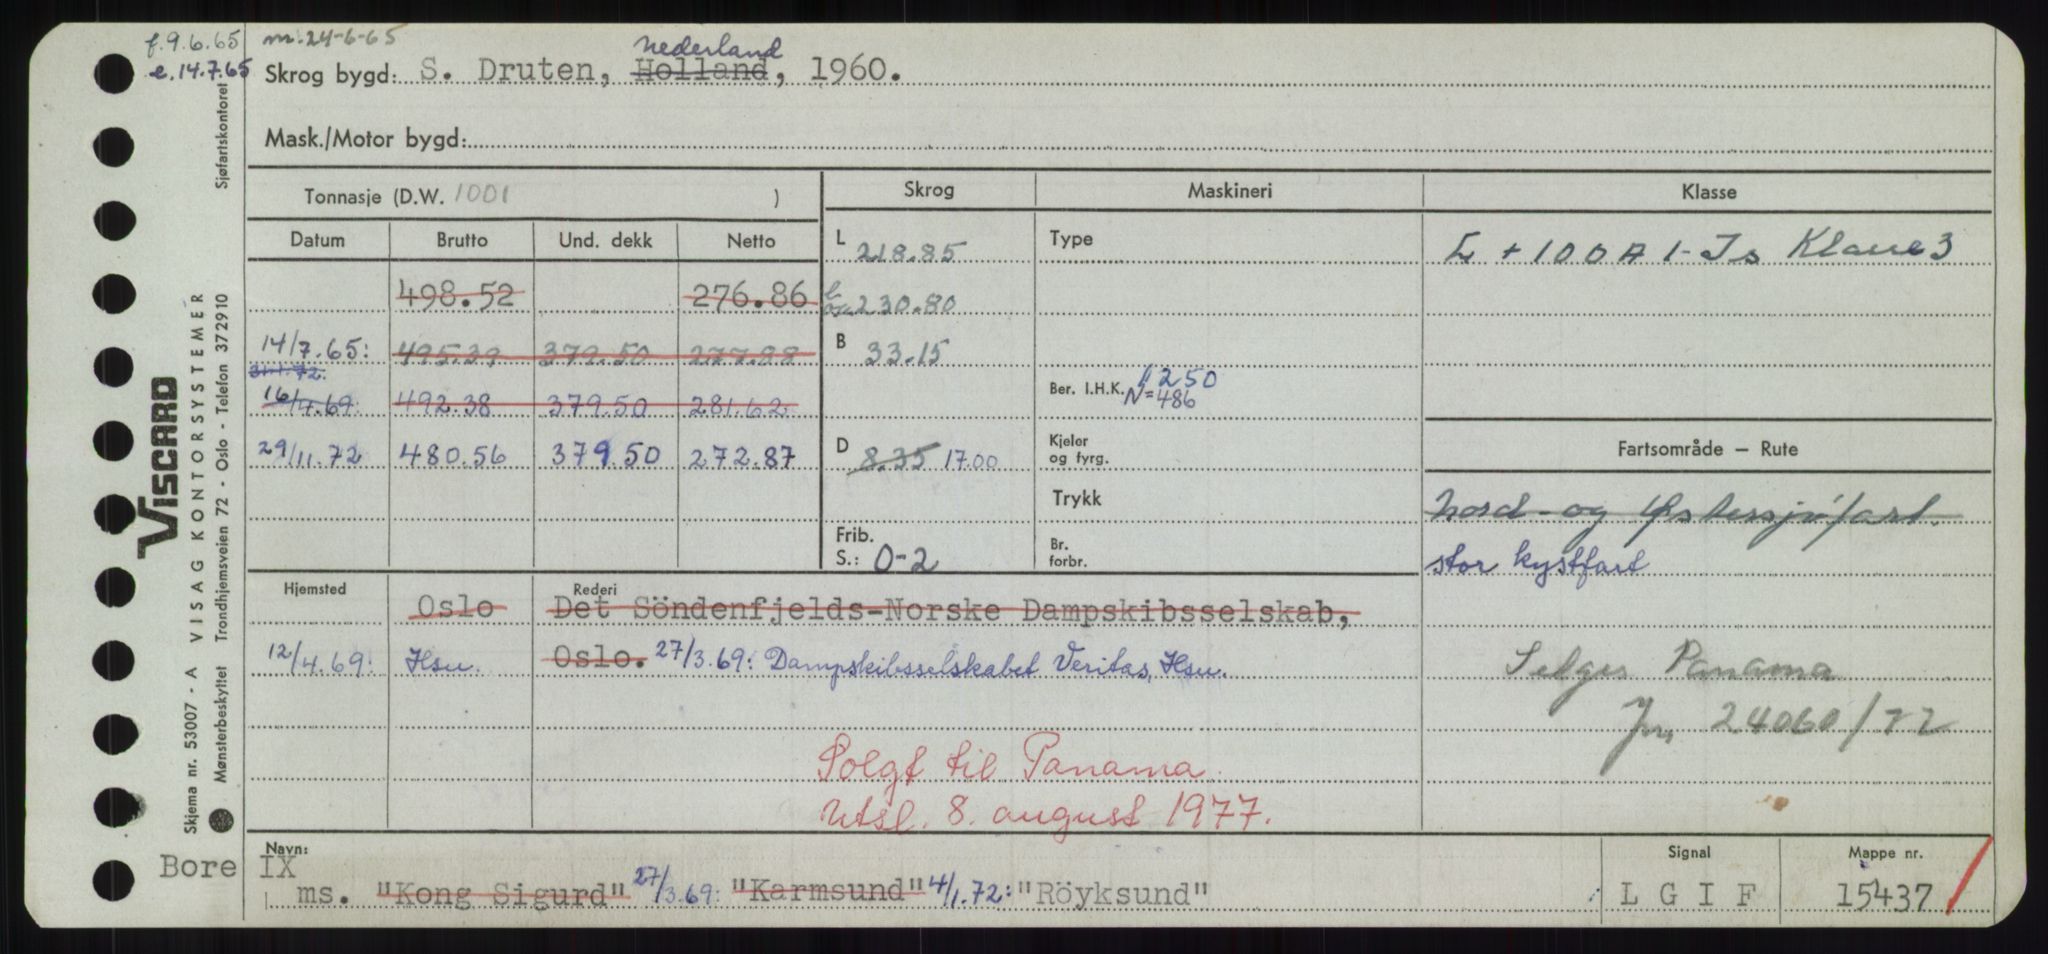 f.9.6.65 m.24-6-65
e.14.7.65
Nederland
Skrog bygd: S. Druten, Holland, 1960.
Mask./Motor bygd:
Tonnasje (D.W. 1001 )
Skrog Maskineri Klasse
Datum Brutto Und. dekk Netto
L 218.85 Type
+100A1-Is Klasse 3
498.52 276.86
230.80
14/7.65: 495.39 379.50 277.88
B 33.15
31.1.72.
16/7.69. 492.38 379.50 281.62
Ber. I.H.K. 1250
N=486
29/11.72 480.56 379.50 272.87
D 8.35 17.00
Kjeler
og fyrg.
Fartsområde – Rute
Trykk
Nord- og Østersjöfart.
Frib.
S.: 0-2
Br.
forbr.
stor kystfart
Hjemsted Rederi
Oslo Det Söndenfjelds-Norske Dampskibsselskab,
12/4.69: Hsu. Oslo. 27/3.69: Dampskibsselskabet Veritas, Hsu.
Selges Panama
Jn. 24060/72
Solgt til Panama.
Utsl. 8. august 1977.
Navn: Signal Mappe nr.
Bore IX
ms. "Kong Sigurd" 27/3.69: "Karmsund" 4/1.72: "Röyksund"
L G I F 15437
Skjema nr. 53007 - A VISAG KONTORSYSTEMER
VISCARD
Mønsterbeskyttet Trondhjemsveien 72 - Oslo - Telefon 372910 Sjøfartskontoret